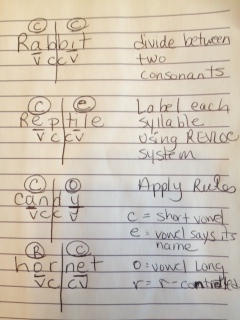 C C
Rabbit
vccv
divide between
two
consonants
C e
Reptile
vccv
Label each
syllable
using REVLOC
system
C O
candy
vccv
Apply Rules
c = short vowel
e = vowel says its
name
R C
hornet
vccv
o = vowel long
r = r-controlled